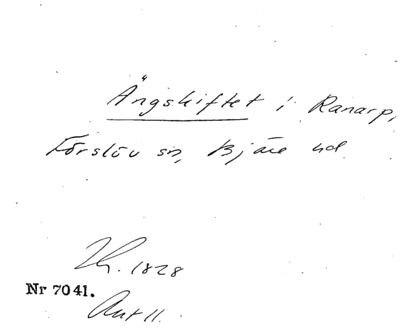 Ängskiftet i Ranarp,
Förslöv sn, Bjäre hd
Th. 1828
Nr 7041.
Akt 11.